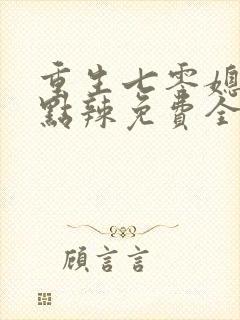 重生七零媳
點辣免費全
顧言言